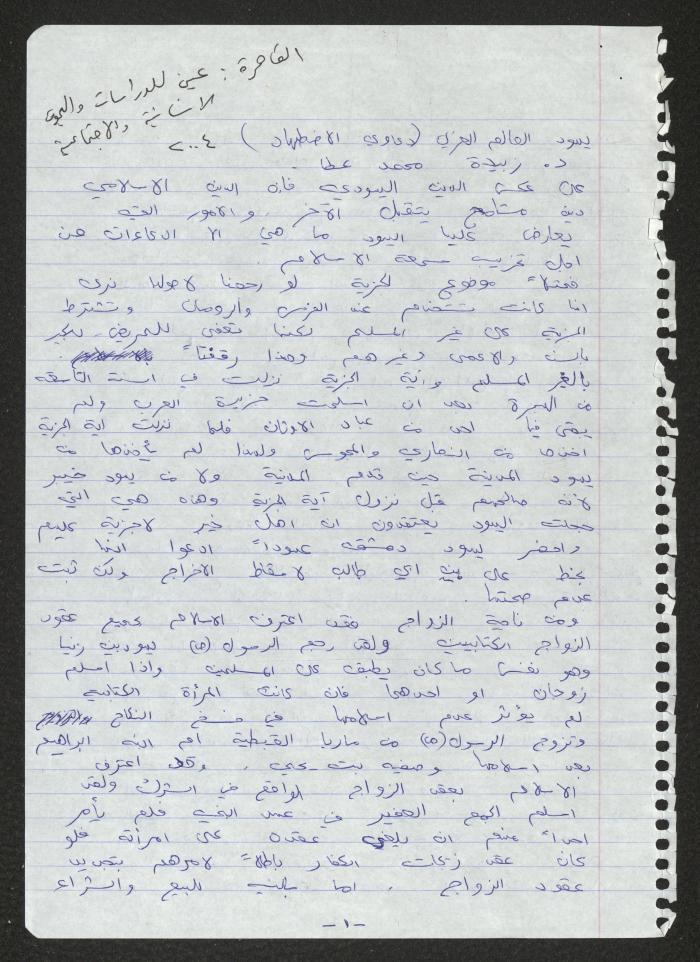 القاهرة : عين للدراسات والبحوث
الانسانية والاجتماعية
٢٠٠٤
يهود العالم العربي (دعاوى الاضطهاد)
د. زبيدة محمد عطا .
على عكس الدين اليهودي فإن الدين الاسلامي
دين متسامح يتقبل الآخر والأمور التي
يعارض عليها اليهود ما هي الا ادعاءات من
اجل تخريب سمعة الاسلام .
فمثلاً موضوع الجزية لو رجعنا لاصولها نرى
انها كانت تستخدم عند الفرس والرومان وتشترط
الجزية على غير المسلم لكنها تعفى للمريض
والاعمى وغيرهم وهذا رفقاً
بالغير المسلم وآية الجزية نزلت في السنة التاسعة
من الهجرة بعد ان اسلمت جزيرة العرب ولم
يبقى فيها احد من عباد الاوثان فلما نزلت آية الجزية
اخذها من النصارى والمجوس ولهذا لم يأخذها من
يهود المدينة حين قدم المدينة ولا من يهود خيبر
لانه صالحهم قبل نزول آية الجزية وهذه هي التي
جعلت اليهود يعتقدون ان اهل خيبر لا جزية عليهم
واحضر يهود دمشق عهوداً ادعوا انها
بخط علي بن ابي طالب لاسقاط الاخراج ولكن ثبت
عدم صحتها .
ومن ناحية الزواج فقد اعترف الاسلام بجميع عقود
الزواج الكتابيين ولقد رجم الرسول (ص) يهوديين زنيا
وهو نفس ما كان يطبق على المسلمين واذا اسلم
زوجان او احدهما فان كانت المرأة الكتابية
لم يؤثر عدم اسلامها في فسخ النكاح
وتزوج الرسول (ص) من ماريا القبطية ام ابنه ابراهيم
بعد اسلامها وصفيه بنت حيي . وقد اعترف
الاسلام بعقد الزواج الواقع في الشرك ولقد
اسلم الجمع الغفير في عهد النبي فلم يأمر
احداً منهم ان يلغي عقده على امرأته فلو
كان عقد زيجات الكفار باطلاً لامرهم بتجديد
عقود الزواج . اما بالنسبة للبيع والشراء
-١-